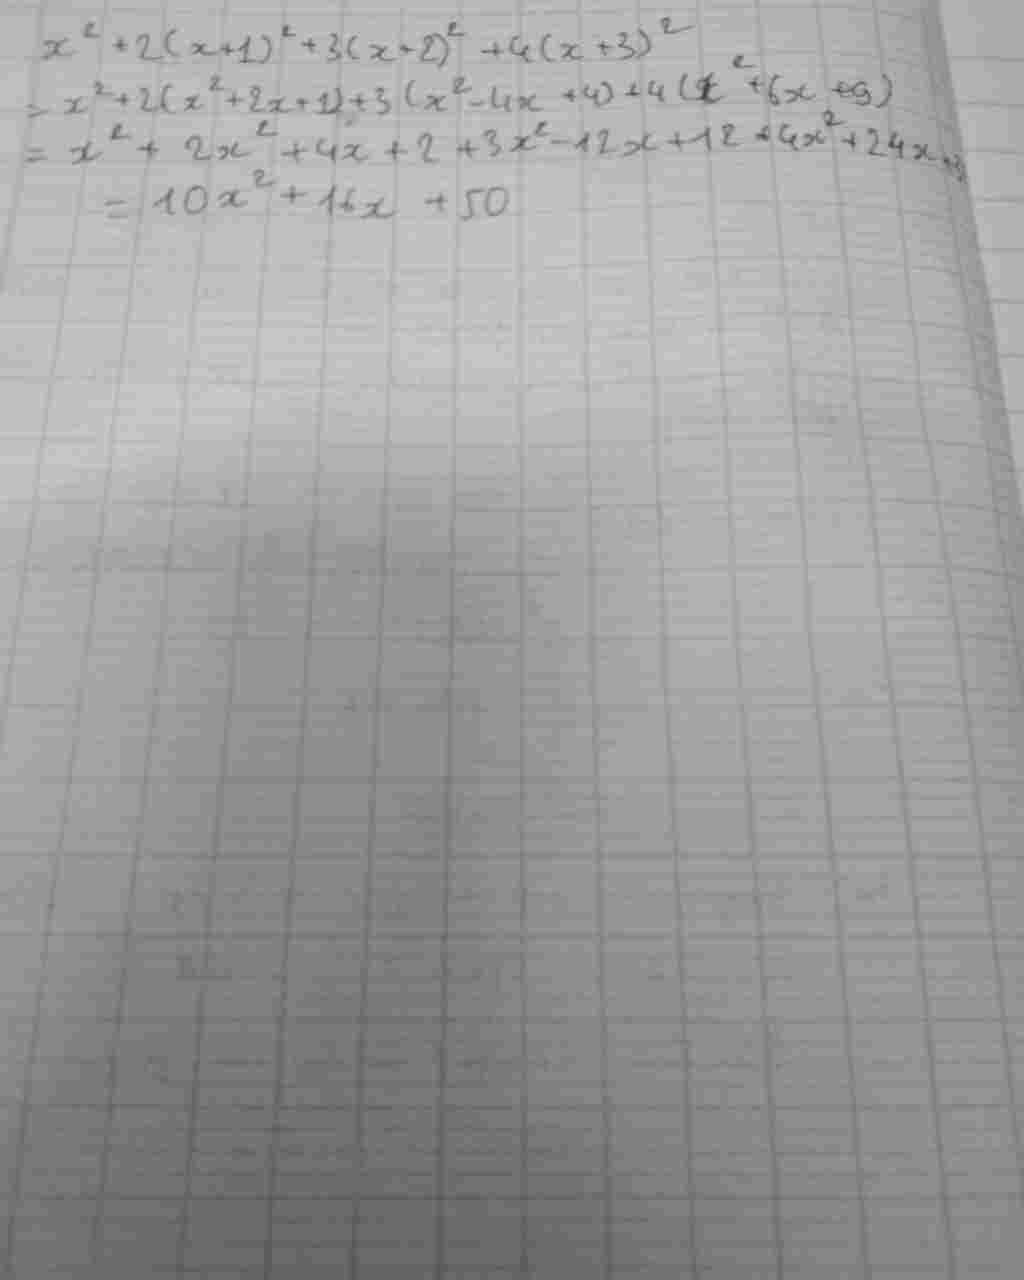 x² + 2(x+1)² + 3(x-2)² + 4(x+3)²
= x² + 2(x² + 2x + 1) + 3(x² - 4x + 4) + 4(x² + 6x + 9)
= x² + 2x² + 4x + 2 + 3x² - 12x + 12 + 4x² + 24x
= 10x² + 16x + 50